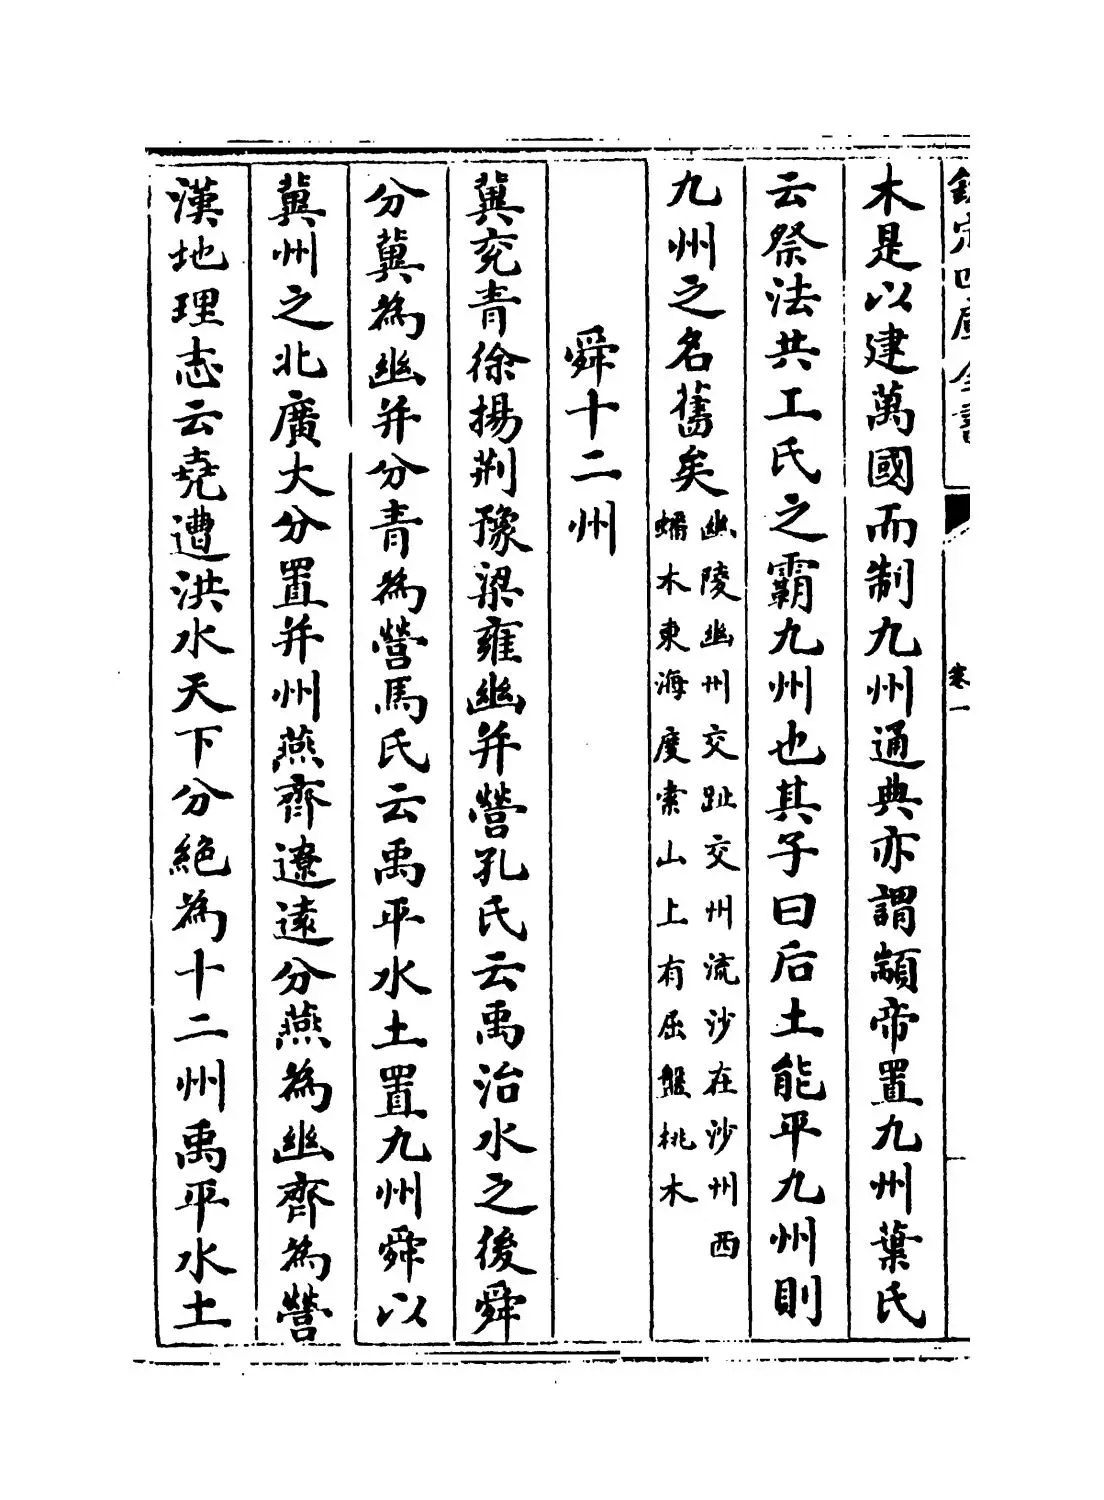 欽定四庫全書
卷一
木是以建萬國而制九州通典亦謂顓帝置九州葉氏
云祭法共工氏之霸九州也其子曰后土能平九州則
九州之名舊矣幽陵幽州交趾交州流沙在沙州西
蟠木東海度索山上有屈盤桃木
舜十二州
冀兖青徐揚荆豫梁雍幽并營孔氏云禹治水之後舜
分冀為幽并分青為營馬氏云禹平水土置九州舜以
冀州之北廣大分置并州燕齊遼遠分燕為幽齊為營
漢地理志云堯遭洪水天下分絶為十二州禹平水土